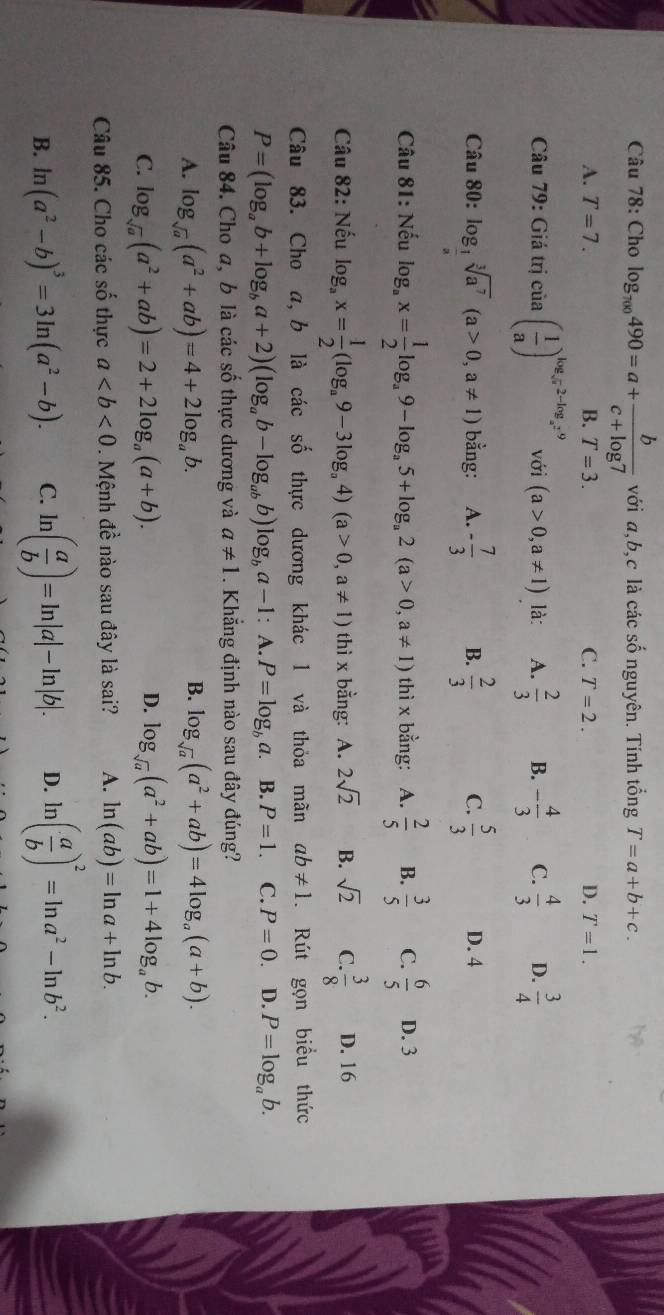 Câu 78: Cho log₇₀₀ 490 = a + b/(c + log 7) với a, b, c là các số nguyên. Tính tổng T = a + b + c.
A. T = 7. B. T = 3. C. T = 2. D. T = 1.
Câu 79: Giá trị của (1/a)^(log_{√a} 2 − log_{a²} 9) với (a > 0, a ≠ 1) là: A. 2/3 B. −4/3 C. 4/3 D. 3/4
Câu 80: log_{1/a} ∛(a⁷) (a > 0, a ≠ 1) bằng: A. -7/3 B. 2/3 C. 5/3 D. 4
Câu 81: Nếu logₐ x = 1/2 logₐ 9 − logₐ 5 + logₐ 2 (a > 0, a ≠ 1) thì x bằng: A. 2/5 B. 3/5 C. 6/5 D. 3
Câu 82: Nếu logₐ x = 1/2 (logₐ 9 − 3 logₐ 4) (a > 0, a ≠ 1) thì x bằng: A. 2√2 B. √2 C. 3/8 D. 16
Câu 83. Cho a, b là các số thực dương khác 1 và thỏa mãn ab ≠ 1. Rút gọn biểu thức
P = (log_a b + log_b a + 2)(log_a b − log_{ab} b) log_b a − 1 : A. P = log_b a. B. P = 1. C. P = 0. D. P = log_a b.
Câu 84. Cho a, b là các số thực dương và a ≠ 1. Khẳng định nào sau đây đúng?
A. log_{√a}(a² + ab) = 4 + 2 log_a b. B. log_{√a}(a² + ab) = 4 log_a(a + b).
C. log_{√a}(a² + ab) = 2 + 2 log_a(a + b). D. log_{√a}(a² + ab) = 1 + 4 log_a b.
Câu 85. Cho các số thực a < b < 0. Mệnh đề nào sau đây là sai? A. ln(ab) = ln a + ln b.
B. ln(a² − b)³ = 3 ln(a² − b). C. ln(a/b) = ln|a| − ln|b|. D. ln(a/b)² = ln a² − ln b².